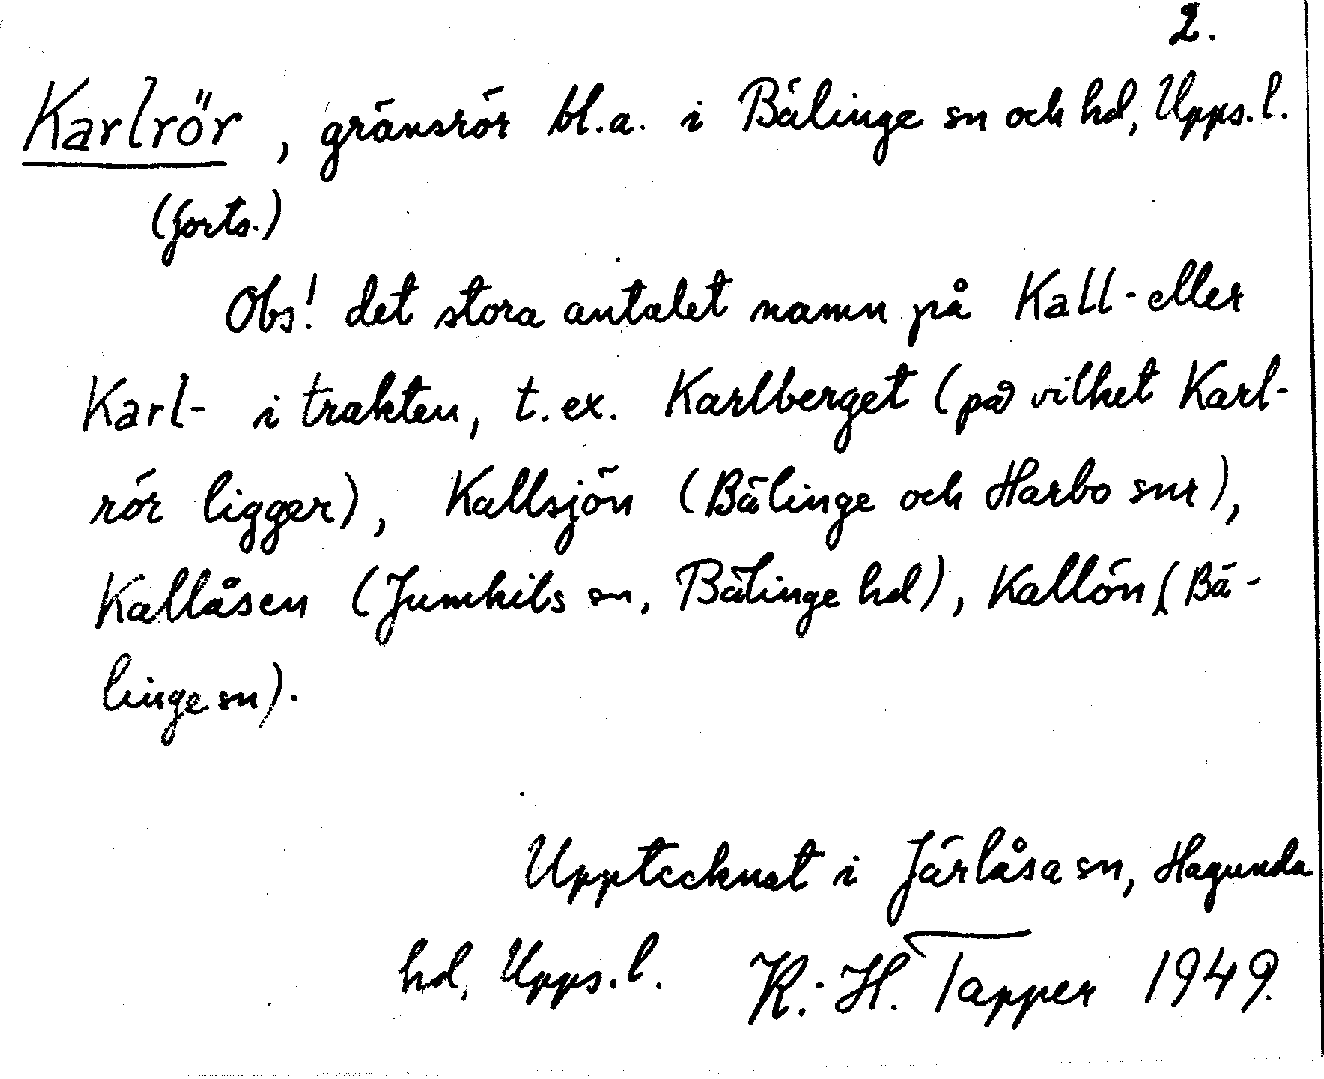 2.
Karlrör, gränsrör bl.a. i Bälinge sn och hd, Upps.l.
(forts.)
Obs! det stora antalet namn på Kall- eller
Karl- i trakten, t.ex. Karlberget (på vilket Karl-
rör ligger), Kallsjön (Bälinge och Harbo snr),
Kallåsen (Jumkils sn, Bälinge hd), Kallön (Bä-
linge sn).
Upptecknat i Järlåsa sn, Hagunda
hd, Upps.l. K.-H. Tapper 1949.